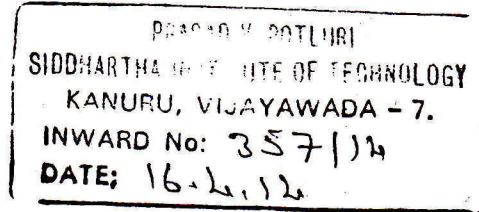 PRASAD V. POTLURI
SIDDHARTHA INSTITUTE OF TECHNOLOGY
KANURU, VIJAYAWADA – 7.
INWARD No: 357/14
DATE; 16.4.14